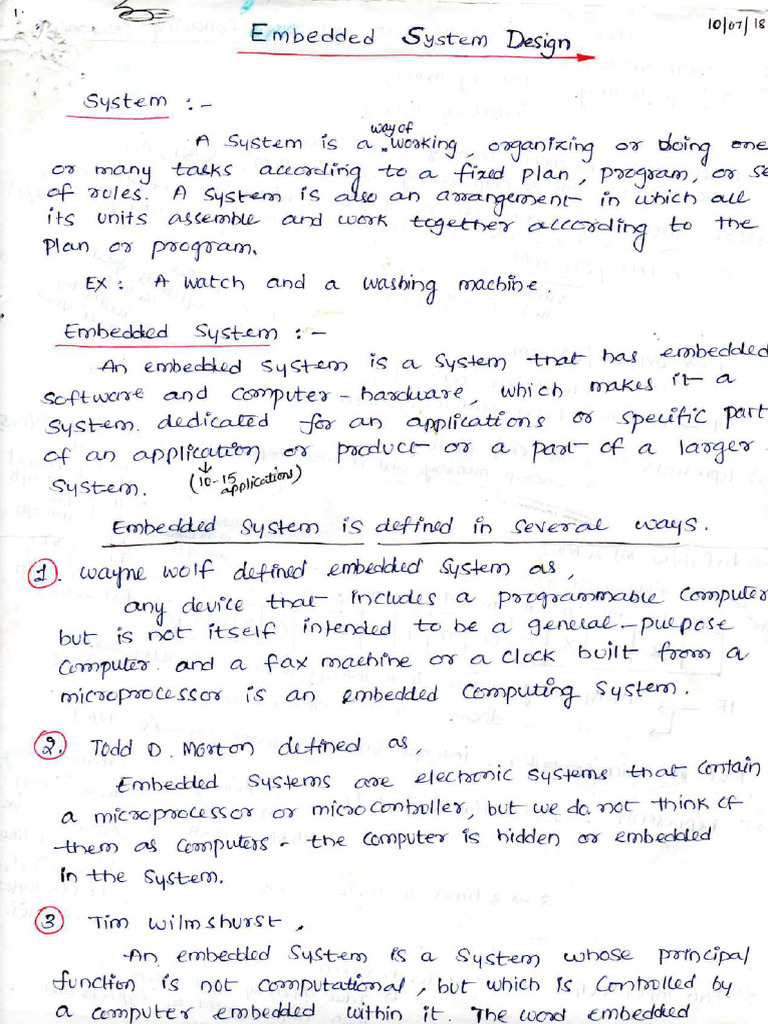 1.
10/07/18
Embedded System Design
System :-
A System is a way of working, organizing or doing one
or many tasks according to a fixed plan, program, or se
of roles. A System is also an arrangement in which all
its units assemble and work together according to the
Plan or program.
Ex : A watch and a washing machine.
Embedded System :-
An embedded System is a System that has embedded
Software and Computer-hardware, which makes it a
System dedicated for an applications or specific part
of an application or product or a part of a larger
System. (10-15 applications)
Embedded System is defined in several ways.
1. Wayne Wolf defined embedded System as,
any device that includes a programmable Computer
but is not itself intended to be a general-purpose
Computer and a fax machine or a clock built from a
microprocessor is an embedded Computing System.
2. Todd D. Morton defined as,
Embedded Systems are electronic Systems that contain
a microprocessor or microcontroller, but we do not think of
them as Computers - the Computer is hidden or embedded
in the System.
3 Tim Wilmshurst,
An embedded System is a System whose principal
function is not Computational, but which is Controlled by
a computer embedded within it. The word embedded